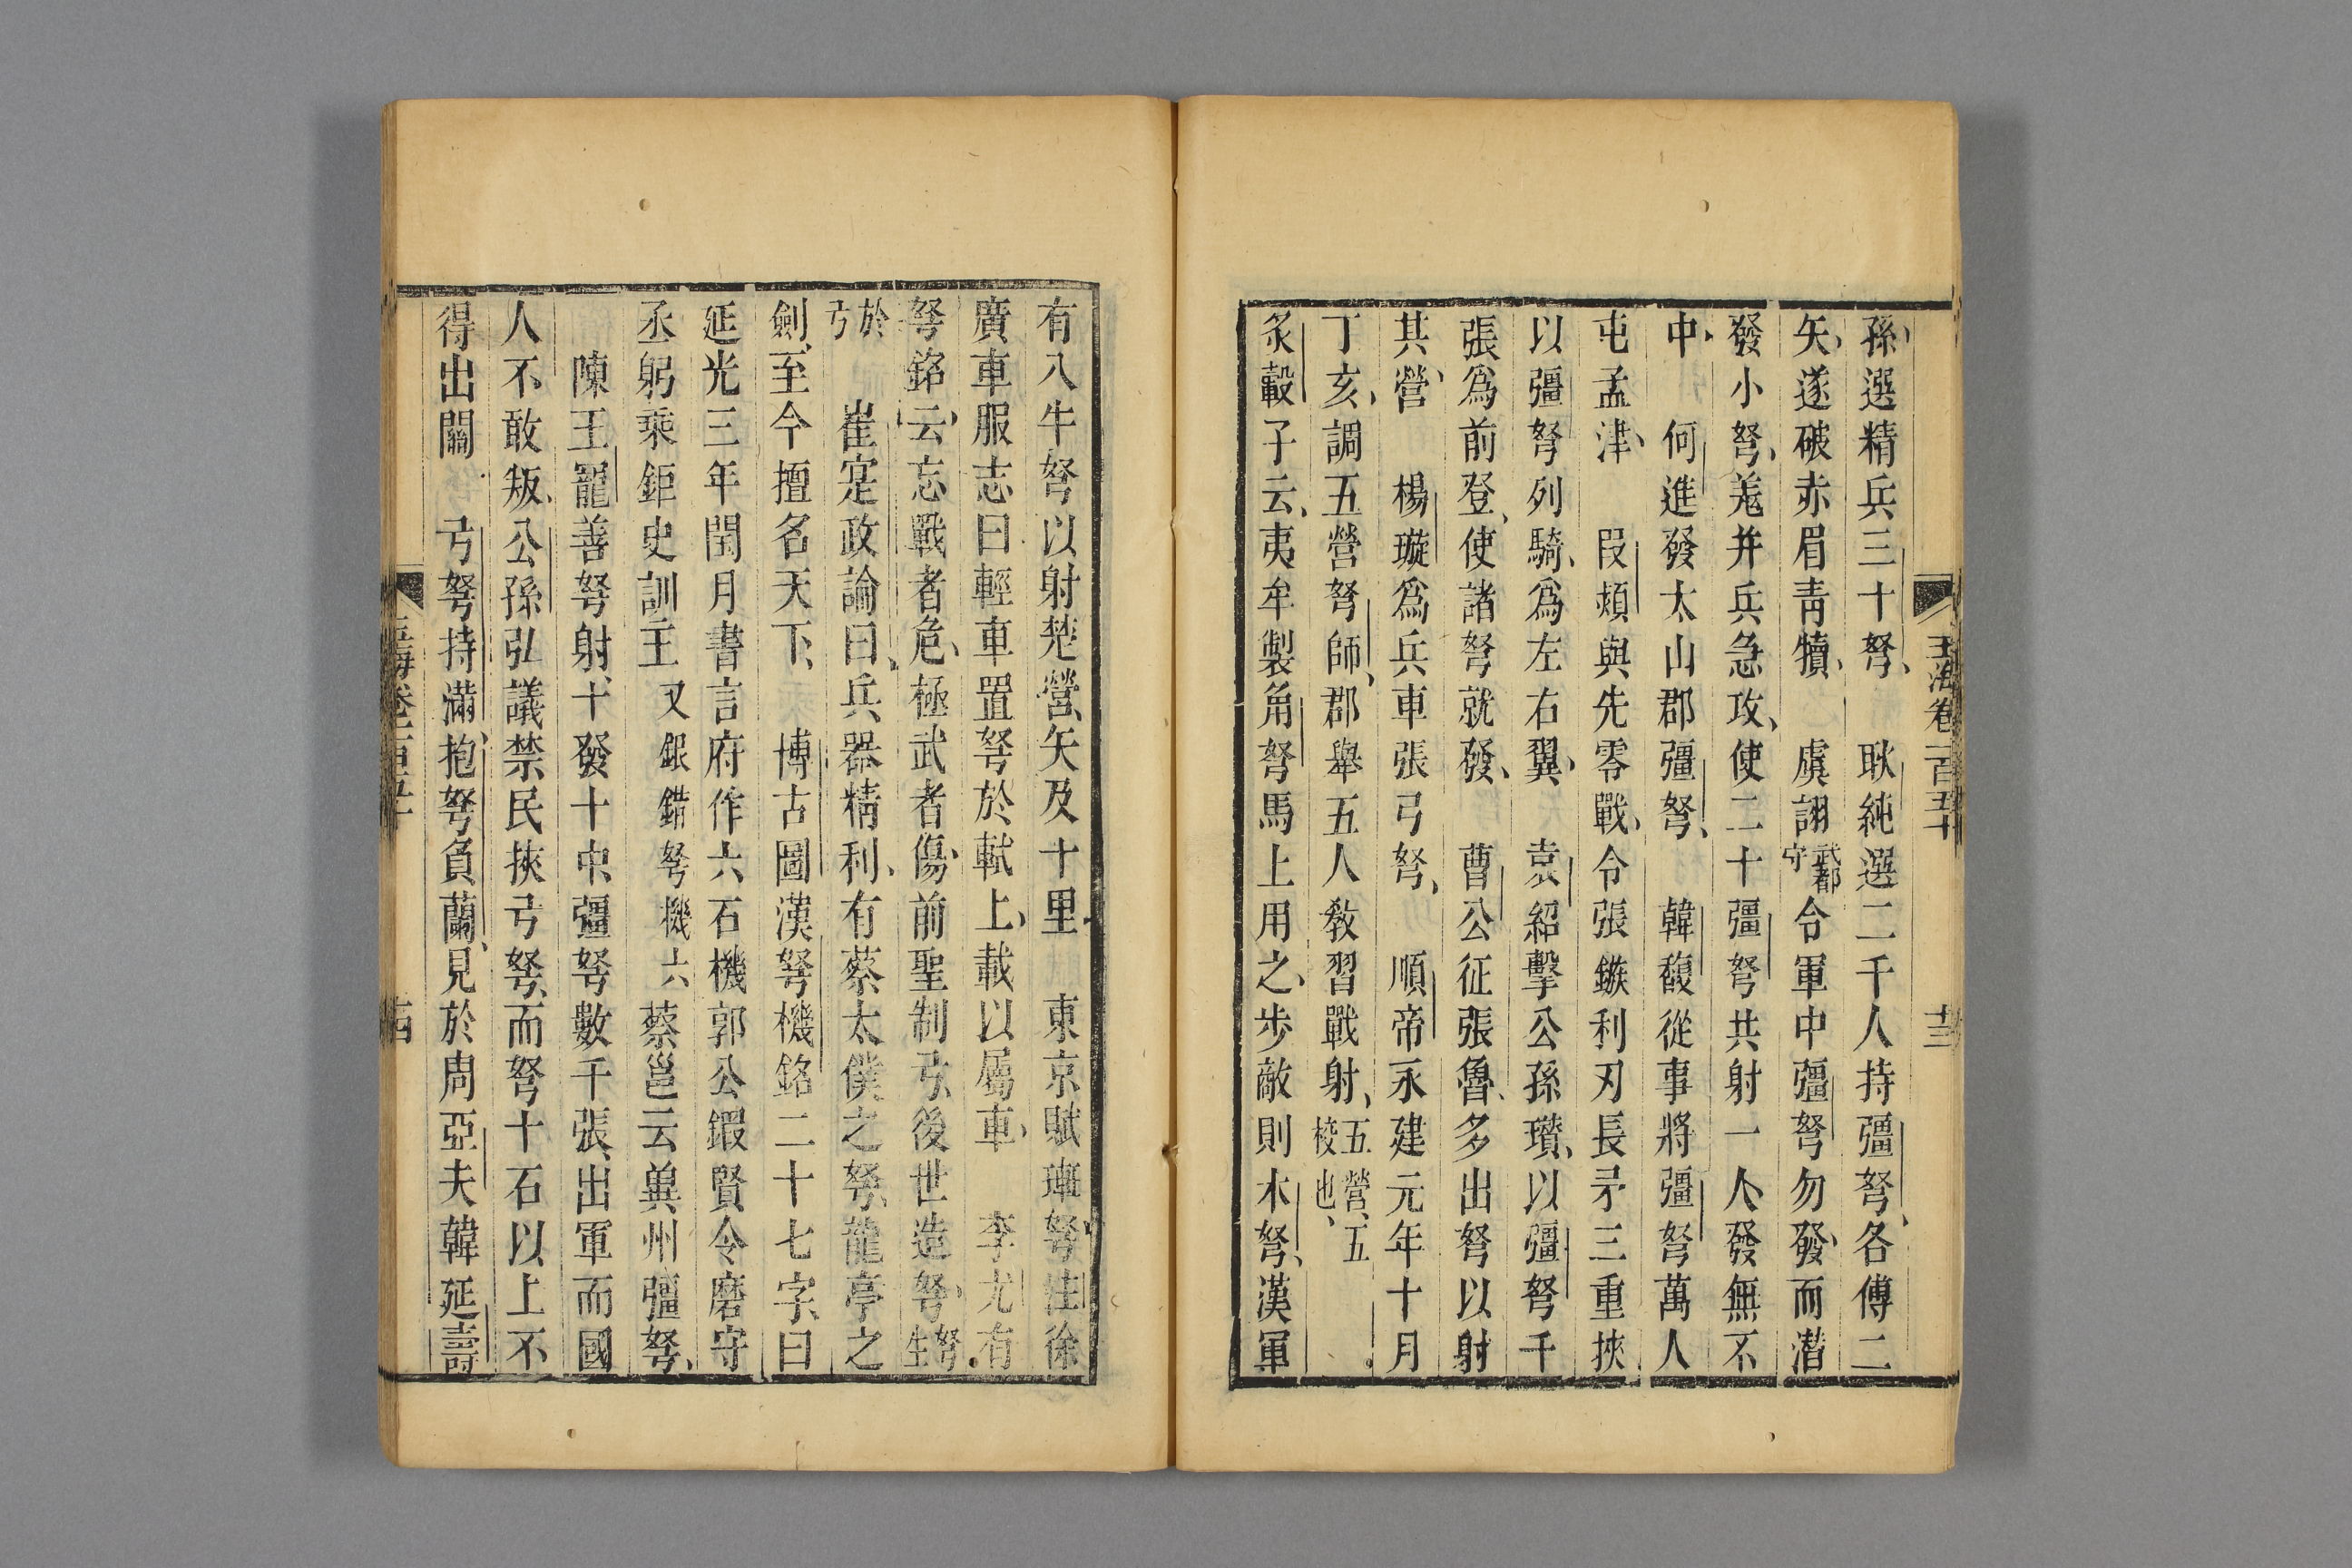 玉海卷一百五十 十三
孫選精兵三十弩 耿純選二千人持彊弩各傅二
矢遂破赤眉青犢 虞詡武都守令軍中彊弩勿發而潛
發小弩羌并兵急攻使二十彊弩共射一人發無不
中 何進發太山郡彊弩 韓馥從事將彊弩萬人
屯孟津 段熲與先零戰令張鏃利刃長矛三重挾
以彊弩列騎爲左右翼 袁紹擊公孫瓚以彊弩千
張爲前登使諸弩就發 曹公征張魯多出弩以射
其營 楊璇爲兵車張弓弩 順帝永建元年十月
丁亥調五營弩師郡舉五人教習戰射五營五校也
炙轂子云夷牟製角弩馬上用之步敵則木弩漢軍
有八牛弩以射楚營矢及十里 東京賦㻽弩注徐
廣車服志曰輕車置弩於軾上載以屬車 李尤有
弩銘云忘戰者危極武者傷前聖制弓後世造弩弩生
於弓 崔寔政論曰兵器精利有蔡太僕之弩龍亭之
劍至今擅名天下 博古圖漢弩機銘二十七字曰
延光三年閏月書言府作六石機郭公鍜賢令磨守
丞躬乘鉅史訓主又銀錯弩機六 蔡邕云兾州彊弩
陳王寵善弩射十發十中彊弩數千張出軍而國
人不敢叛公孫弘議禁民挾弓弩而弩十石以上不
得出關 弓弩持滿抱弩負蘭見於周亞夫韓延壽
玉海卷一百五十 十四